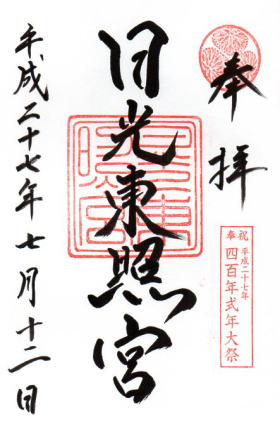 奉拝
奉祝
平成二十七年
四百年式年大祭
日光東照宮
平成二十七年七月十二日